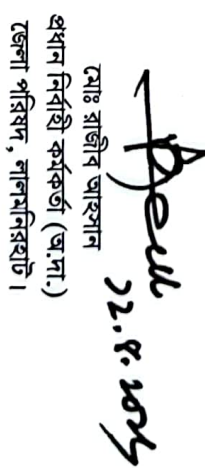 মোঃ রাজিব আহসান
প্রধান নির্বাহি কর্মকর্তা (অ.দা.)
জেলা পরিষদ, লালমনিরহাট।